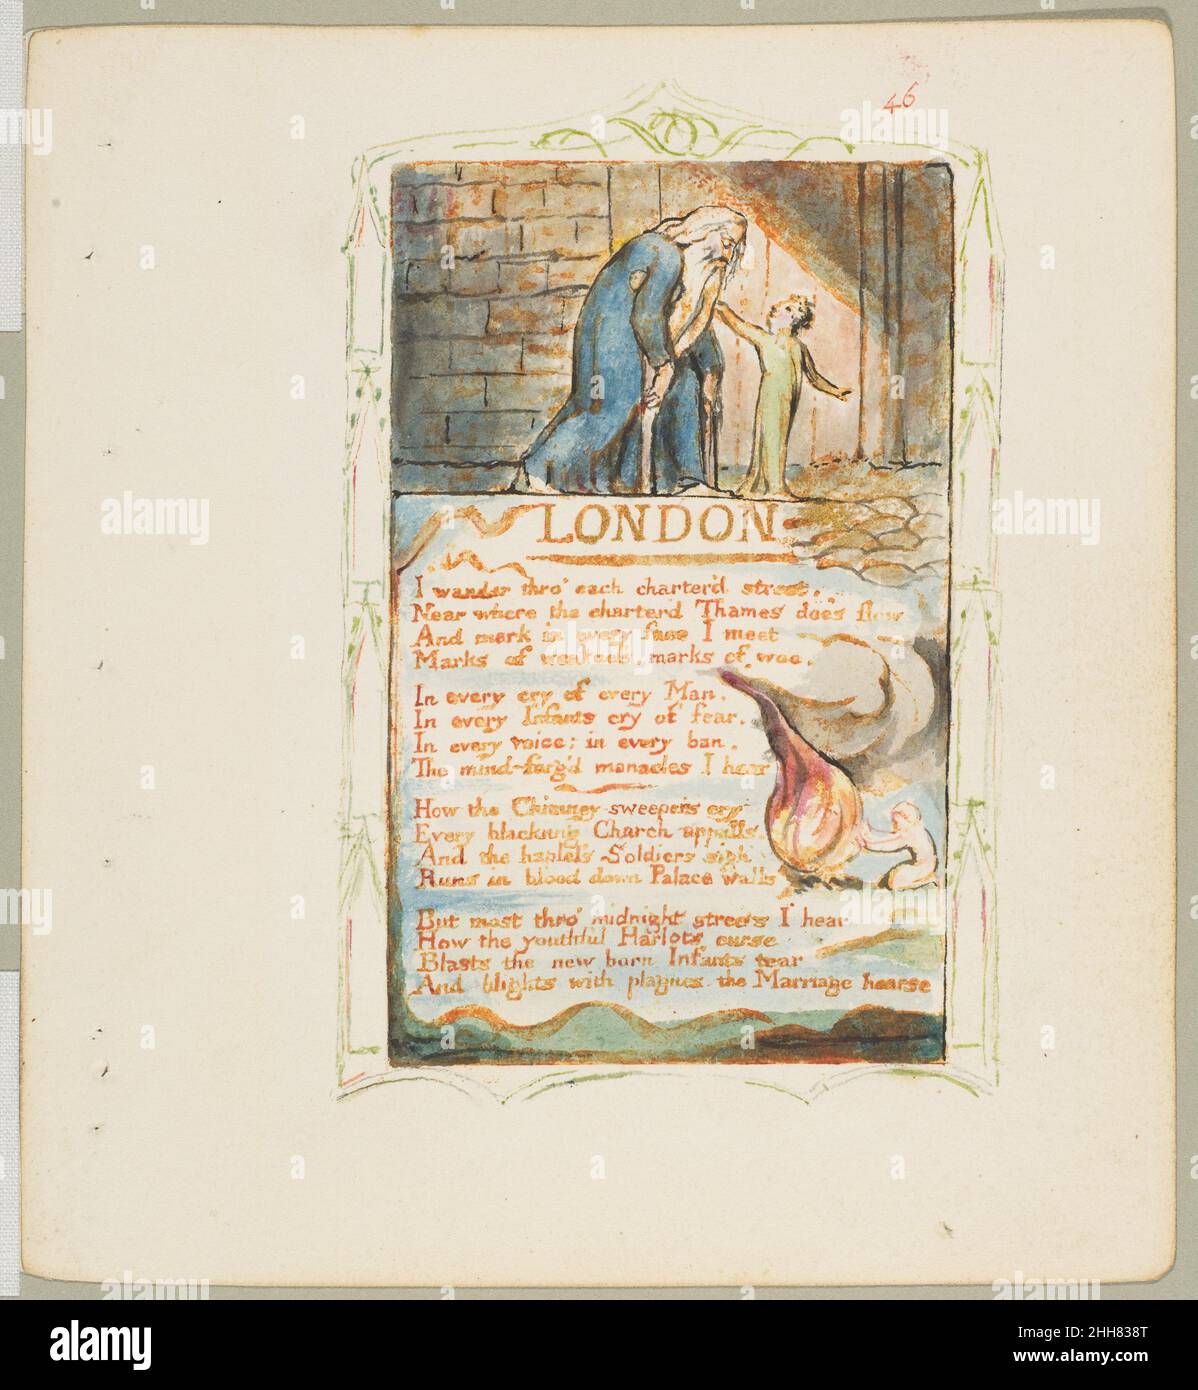 46
LONDON
I wander thro' each charter'd street,
Near where the charter'd Thames does flow
And mark in every face I meet
Marks of weakness, marks of woe.
In every cry of every Man,
In every Infants cry of fear,
In every voice; in every ban,
The mind-forg'd manacles I hear
How the Chimney-sweepers cry
Every blackning Church appalls,
And the hapless Soldiers sigh
Runs in blood down Palace walls
But most thro' midnight streets I hear
How the youthful Harlots curse
Blasts the new born Infants tear
And blights with plagues the Marriage hearse
alamy
Image ID: 2HH838T
www.alamy.com